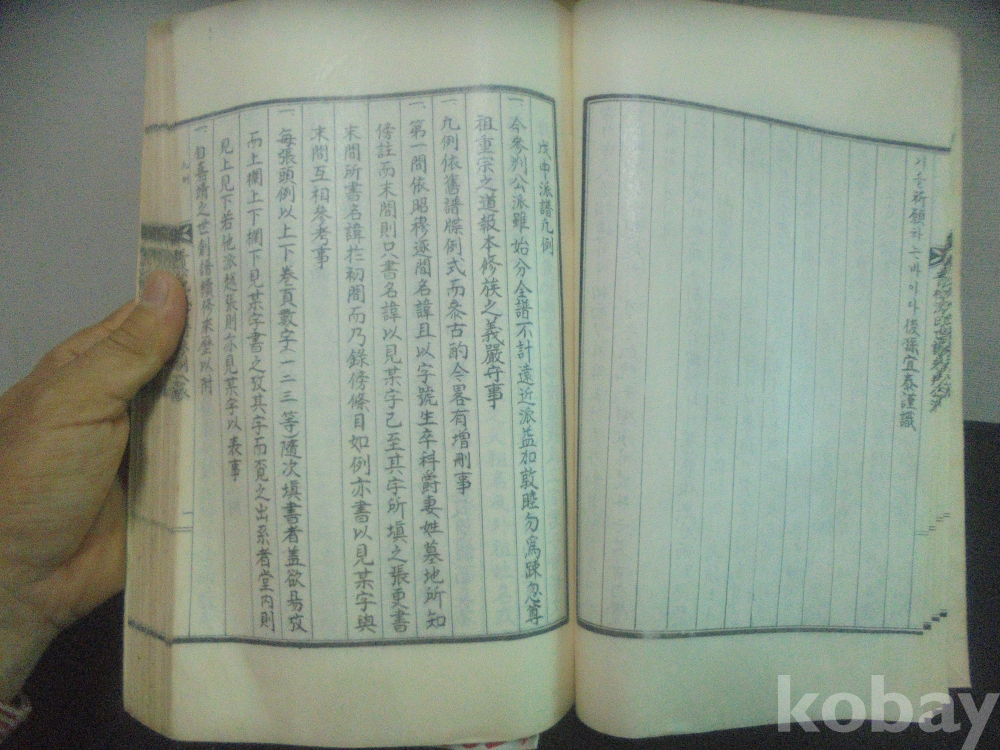 서을祈願하는바이다 後孫宜泰謹識
戊申派譜凡例
一 今參判公派雖始分全譜不計遠近派益加敦睦勿爲踈忽尊
祖重宗之道報本修族之義嚴守事
一 凡例依舊譜牒例式而叅古酌今畧有增刪事
一 第一間依昭穆逐間名諱且以字號生卒科爵妻姓墓地所知
俻註而末間則只書名諱以見某字已至其字所塡之張更書
名諱於初間而乃錄傍條目如例亦書以見某字與
末間互相參考事
一 每張頭例以上下卷頁數字一二三等隨次塡書者盖欲易攷
而上欄上下欄下見某字書之攷其字而覓之出系者堂內則
見上見下若他派越張則亦見某字以表事
kobay